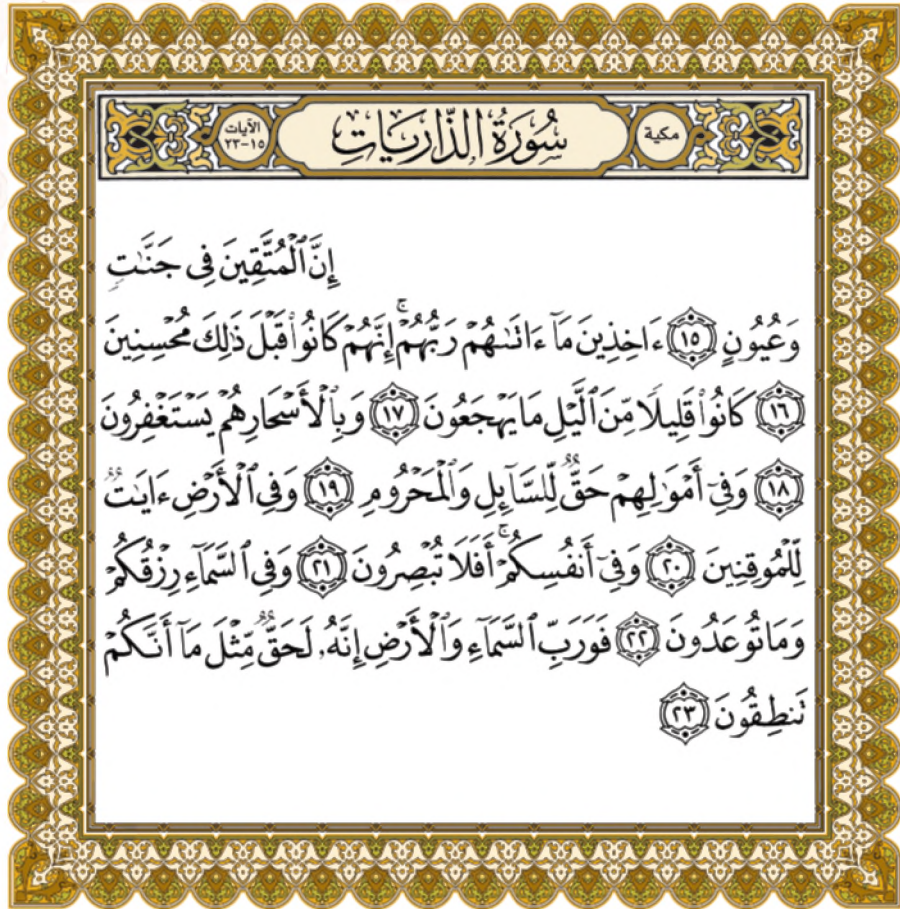 مكية
سُورَةُ الذَّارِيَاتِ
الآيات
١٥-٢٣
إِنَّ ٱلْمُتَّقِينَ فِى جَنَّـٰتٍ
وَعُيُونٍ ١٥ ءَاخِذِينَ مَآ ءَاتَىٰهُمْ رَبُّهُمْ ۚ إِنَّهُمْ كَانُوا۟ قَبْلَ ذَٰلِكَ مُحْسِنِينَ
١٦ كَانُوا۟ قَلِيلًا مِّنَ ٱلَّيْلِ مَا يَهْجَعُونَ ١٧ وَبِٱلْأَسْحَارِ هُمْ يَسْتَغْفِرُونَ
١٨ وَفِىٓ أَمْوَٰلِهِمْ حَقٌّ لِّلسَّآئِلِ وَٱلْمَحْرُومِ ١٩ وَفِى ٱلْأَرْضِ ءَايَـٰتٌ
لِّلْمُوقِنِينَ ٢٠ وَفِىٓ أَنفُسِكُمْ ۚ أَفَلَا تُبْصِرُونَ ٢١ وَفِى ٱلسَّمَآءِ رِزْقُكُمْ
وَمَا تُوعَدُونَ ٢٢ فَوَرَبِّ ٱلسَّمَآءِ وَٱلْأَرْضِ إِنَّهُۥ لَحَقٌّ مِّثْلَ مَآ أَنَّكُمْ
تَنطِقُونَ ٢٣